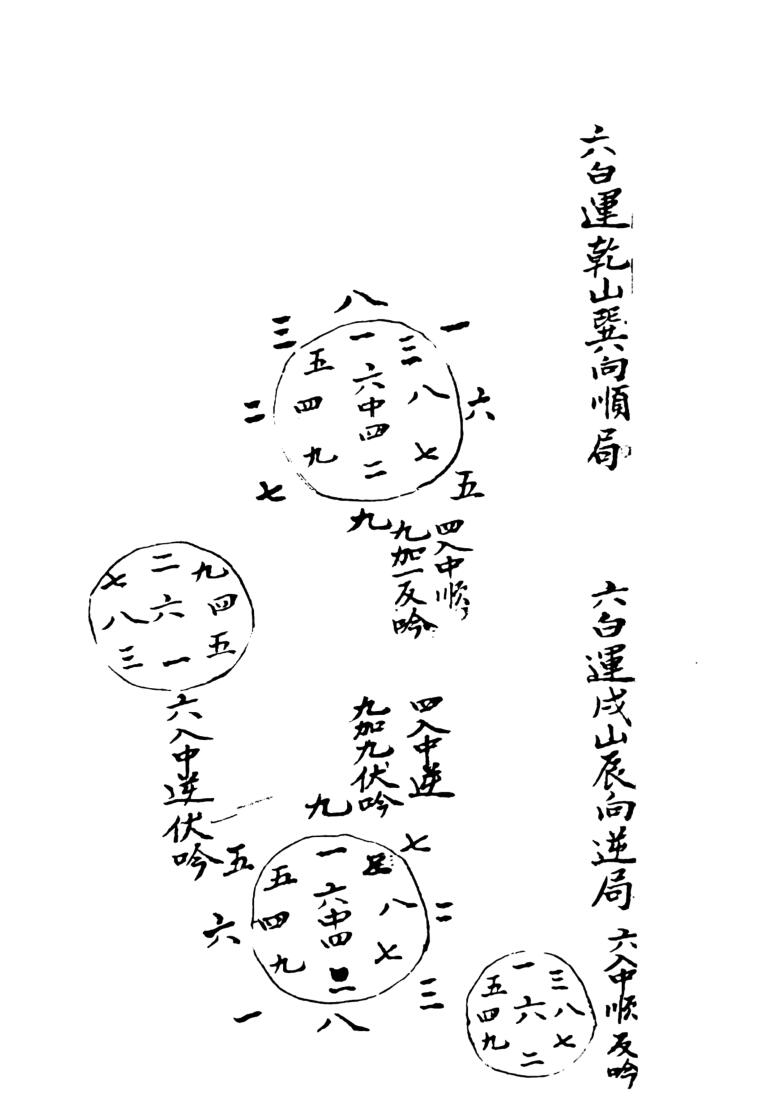 六白運乾山巽向順局
八
三 一
一
五 三
六
二 四 中 八 六
四
九 七
二
七 五
九
四入中順
九加一反吟
二
七 九
八 六 四
三 五
一
六入中逆伏吟
六白運戌山辰向逆局
四入中逆
九加九伏吟
九
五 七
一
五
六
六 四 中 八 二
四
九 七
二
三
一 八
六入中順反吟
一
五 三
四 六 八
九 七
二